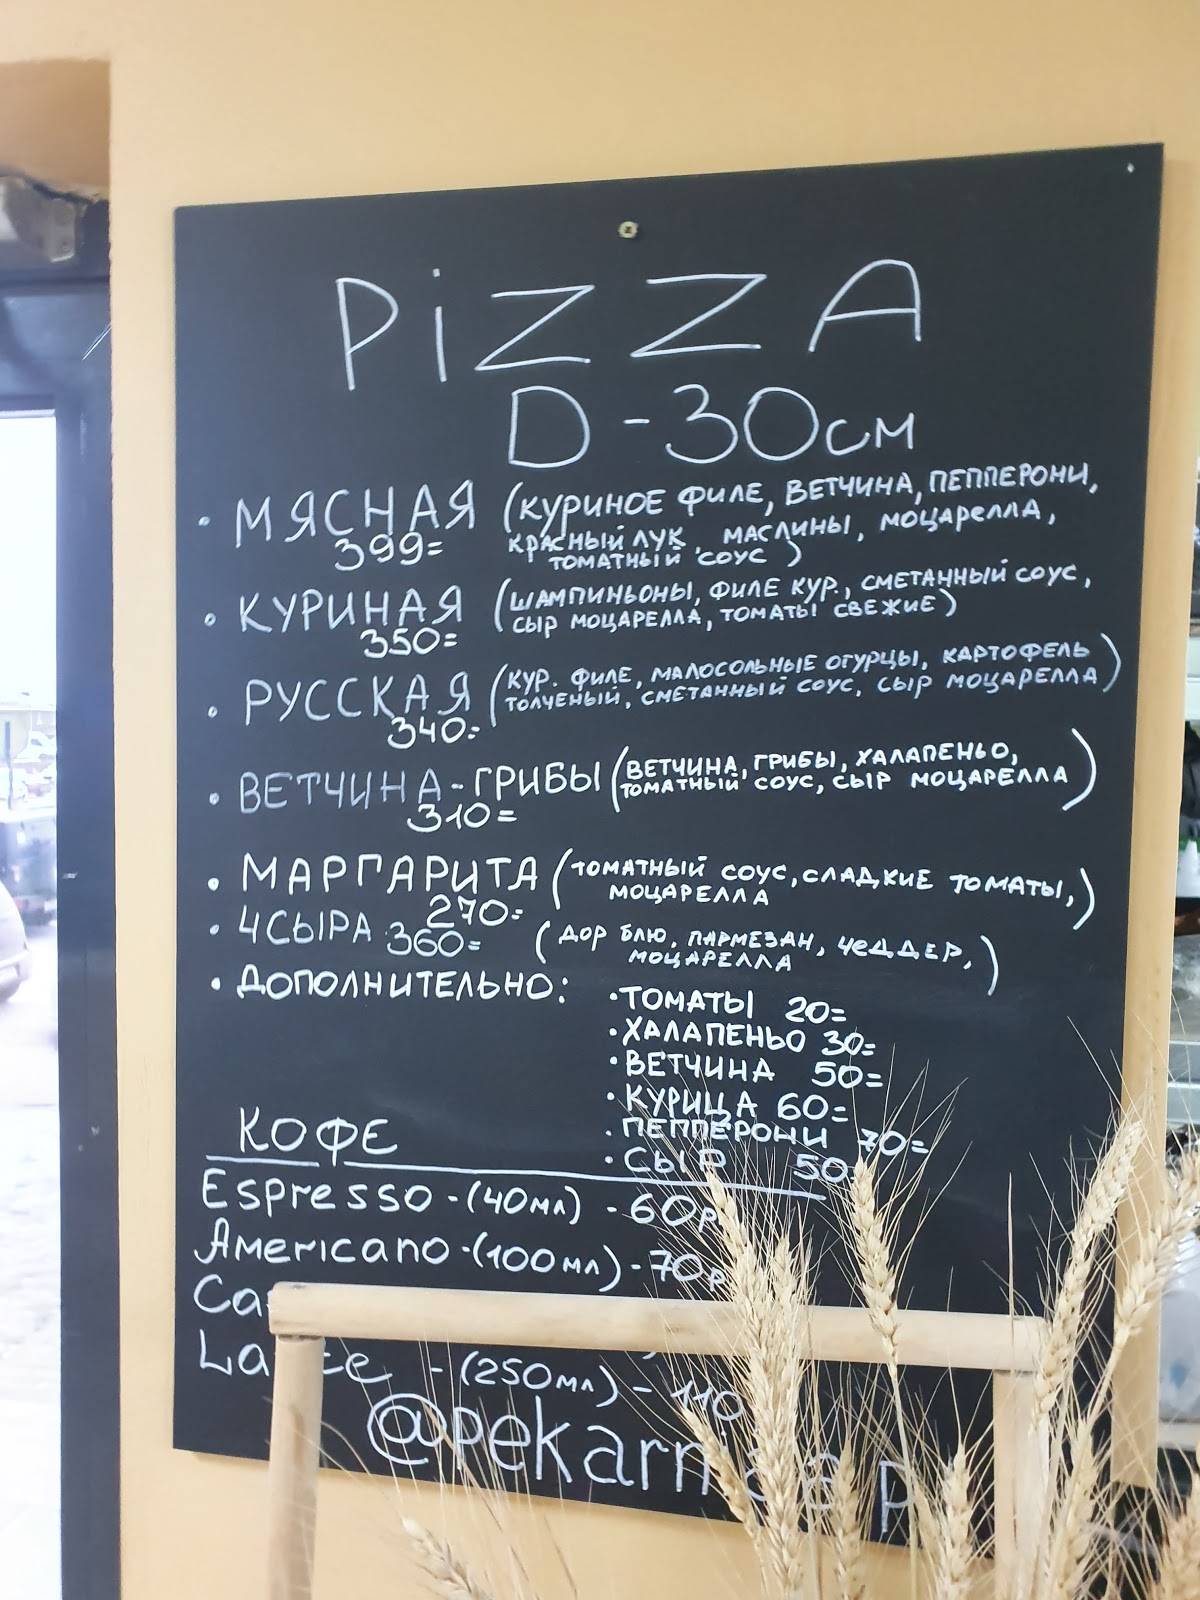 PiZZA
D-30см
• МЯСНАЯ (КУРИНОЕ ФИЛЕ, ВЕТЧИНА, ПЕППЕРОНИ,
399= КРАСНЫЙ ЛУК, МАСЛИНЫ, МОЦАРЕЛЛА,
ТОМАТНЫЙ СОУС)
• КУРИНАЯ (ШАМПИНЬОНЫ, ФИЛЕ КУР., СМЕТАННЫЙ СОУС,
350= СЫР МОЦАРЕЛЛА, ТОМАТЫ СВЕЖИЕ)
• РУССКАЯ (КУР. ФИЛЕ, МАЛОСОЛЬНЫЕ ОГУРЦЫ, КАРТОФЕЛЬ
340= ТОЛЧЕНЫЙ, СМЕТАННЫЙ СОУС, СЫР МОЦАРЕЛЛА)
• ВЕТЧИНА-ГРИБЫ (ВЕТЧИНА, ГРИБЫ, ХАЛАПЕНЬО,
310= ТОМАТНЫЙ СОУС, СЫР МОЦАРЕЛЛА)
• МАРГАРИТА (ТОМАТНЫЙ СОУС, СЛАДКИЕ ТОМАТЫ,
270= МОЦАРЕЛЛА)
• 4СЫРА 360= (ДОР БЛЮ, ПАРМЕЗАН, ЧЕДДЕР,
МОЦАРЕЛЛА)
• ДОПОЛНИТЕЛЬНО:
• ТОМАТЫ 20=
• ХАЛАПЕНЬО 30=
• ВЕТЧИНА 50=
• КУРИЦА 60=
• ПЕППЕРОНИ 70=
• СЫР 50=
КОФЕ
Espresso - (40мл) - 60р
Americano - (100мл) - 70р
- (250мл) - 110